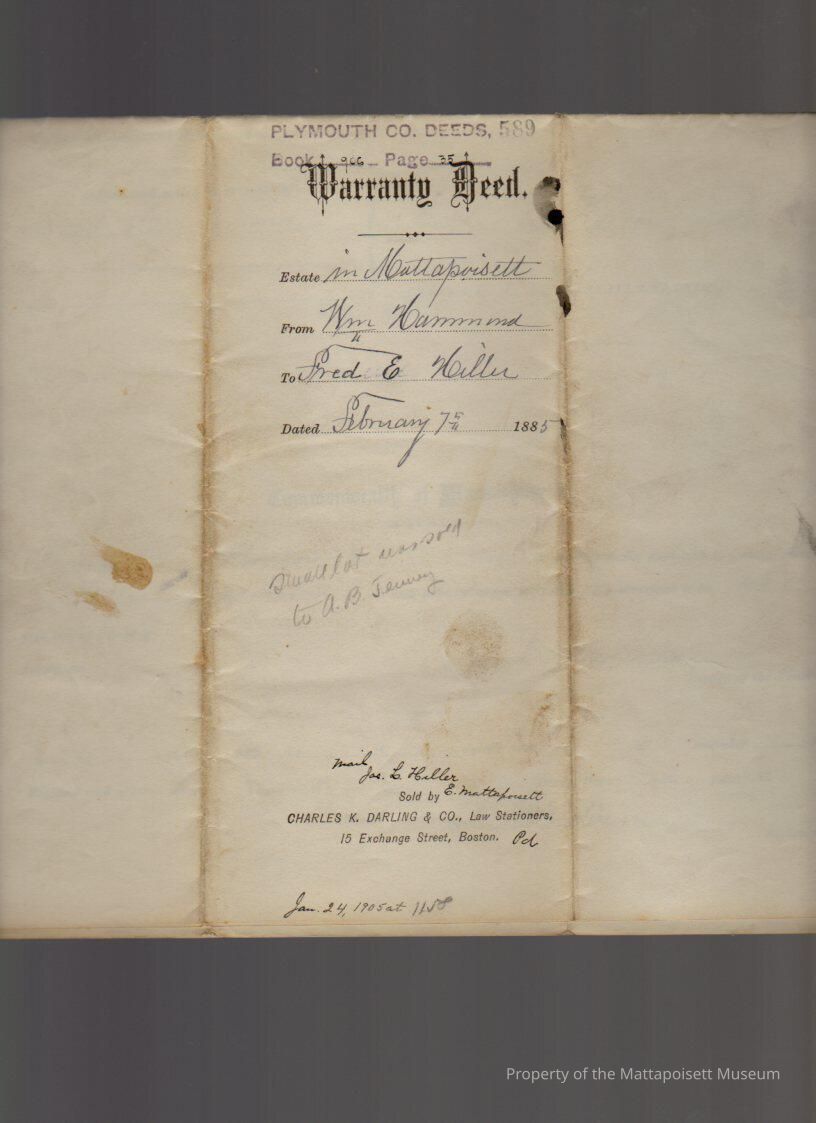 PLYMOUTH CO. DEEDS, 589
Book 906 Page 35
Warranty Deed.
Estate in Mattapoisett
From Wm Hammond
To Fred E Hiller
Dated February 7th 1885
Small lot was sold
to A. B. Jenney
Mail
Jas. L. Hiller
Sold by E. Mattapoisett
CHARLES K. DARLING & CO., Law Stationers,
15 Exchange Street, Boston. Pd
Jan. 24, 1905 at
Property of the Mattapoisett Museum